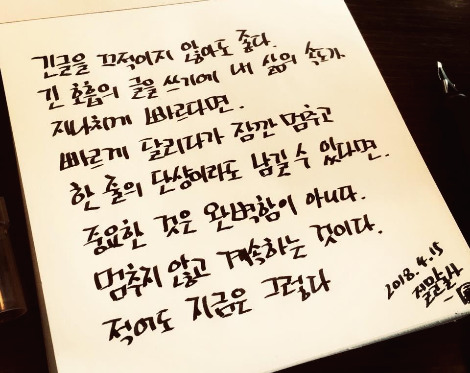 긴글을 끄적이지 않아도 좋다.
긴 호흡의 글을 쓰기에 내 삶의 속도가
지나치게 빠르다면.
빠르게 달리다가 잠깐 멈추고
한 줄의 단상이라도 남길 수 있다면.
중요한 것은 완벽함이 아니다.
멈추지 않고 계속하는 것이다.
적어도 지금은 그렇다
2018. 4. 15